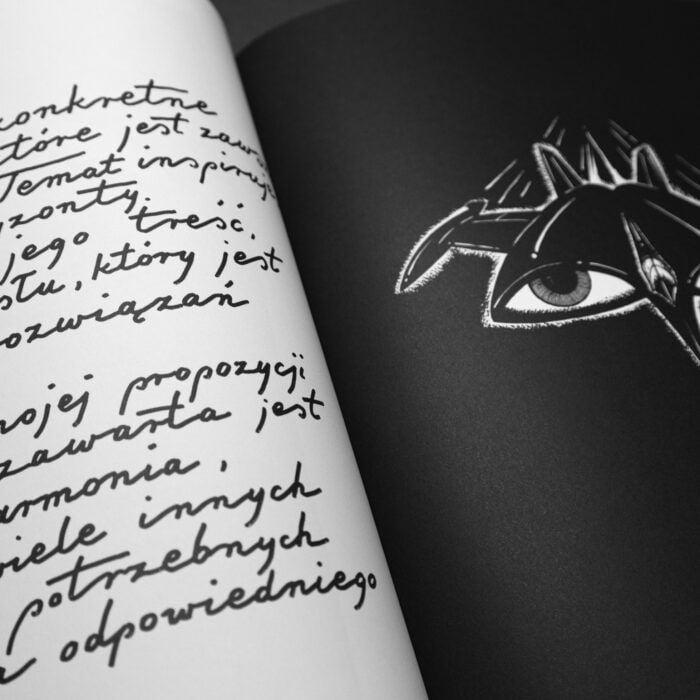 konkretne
które jest zaws
Temat inspiruje
yzonty.
jego treść,
słu, który jest
rozwiązań
mojej propozycji
zawarta jest
armonia,
wiele innych
potrzebnych
odpowiedniego